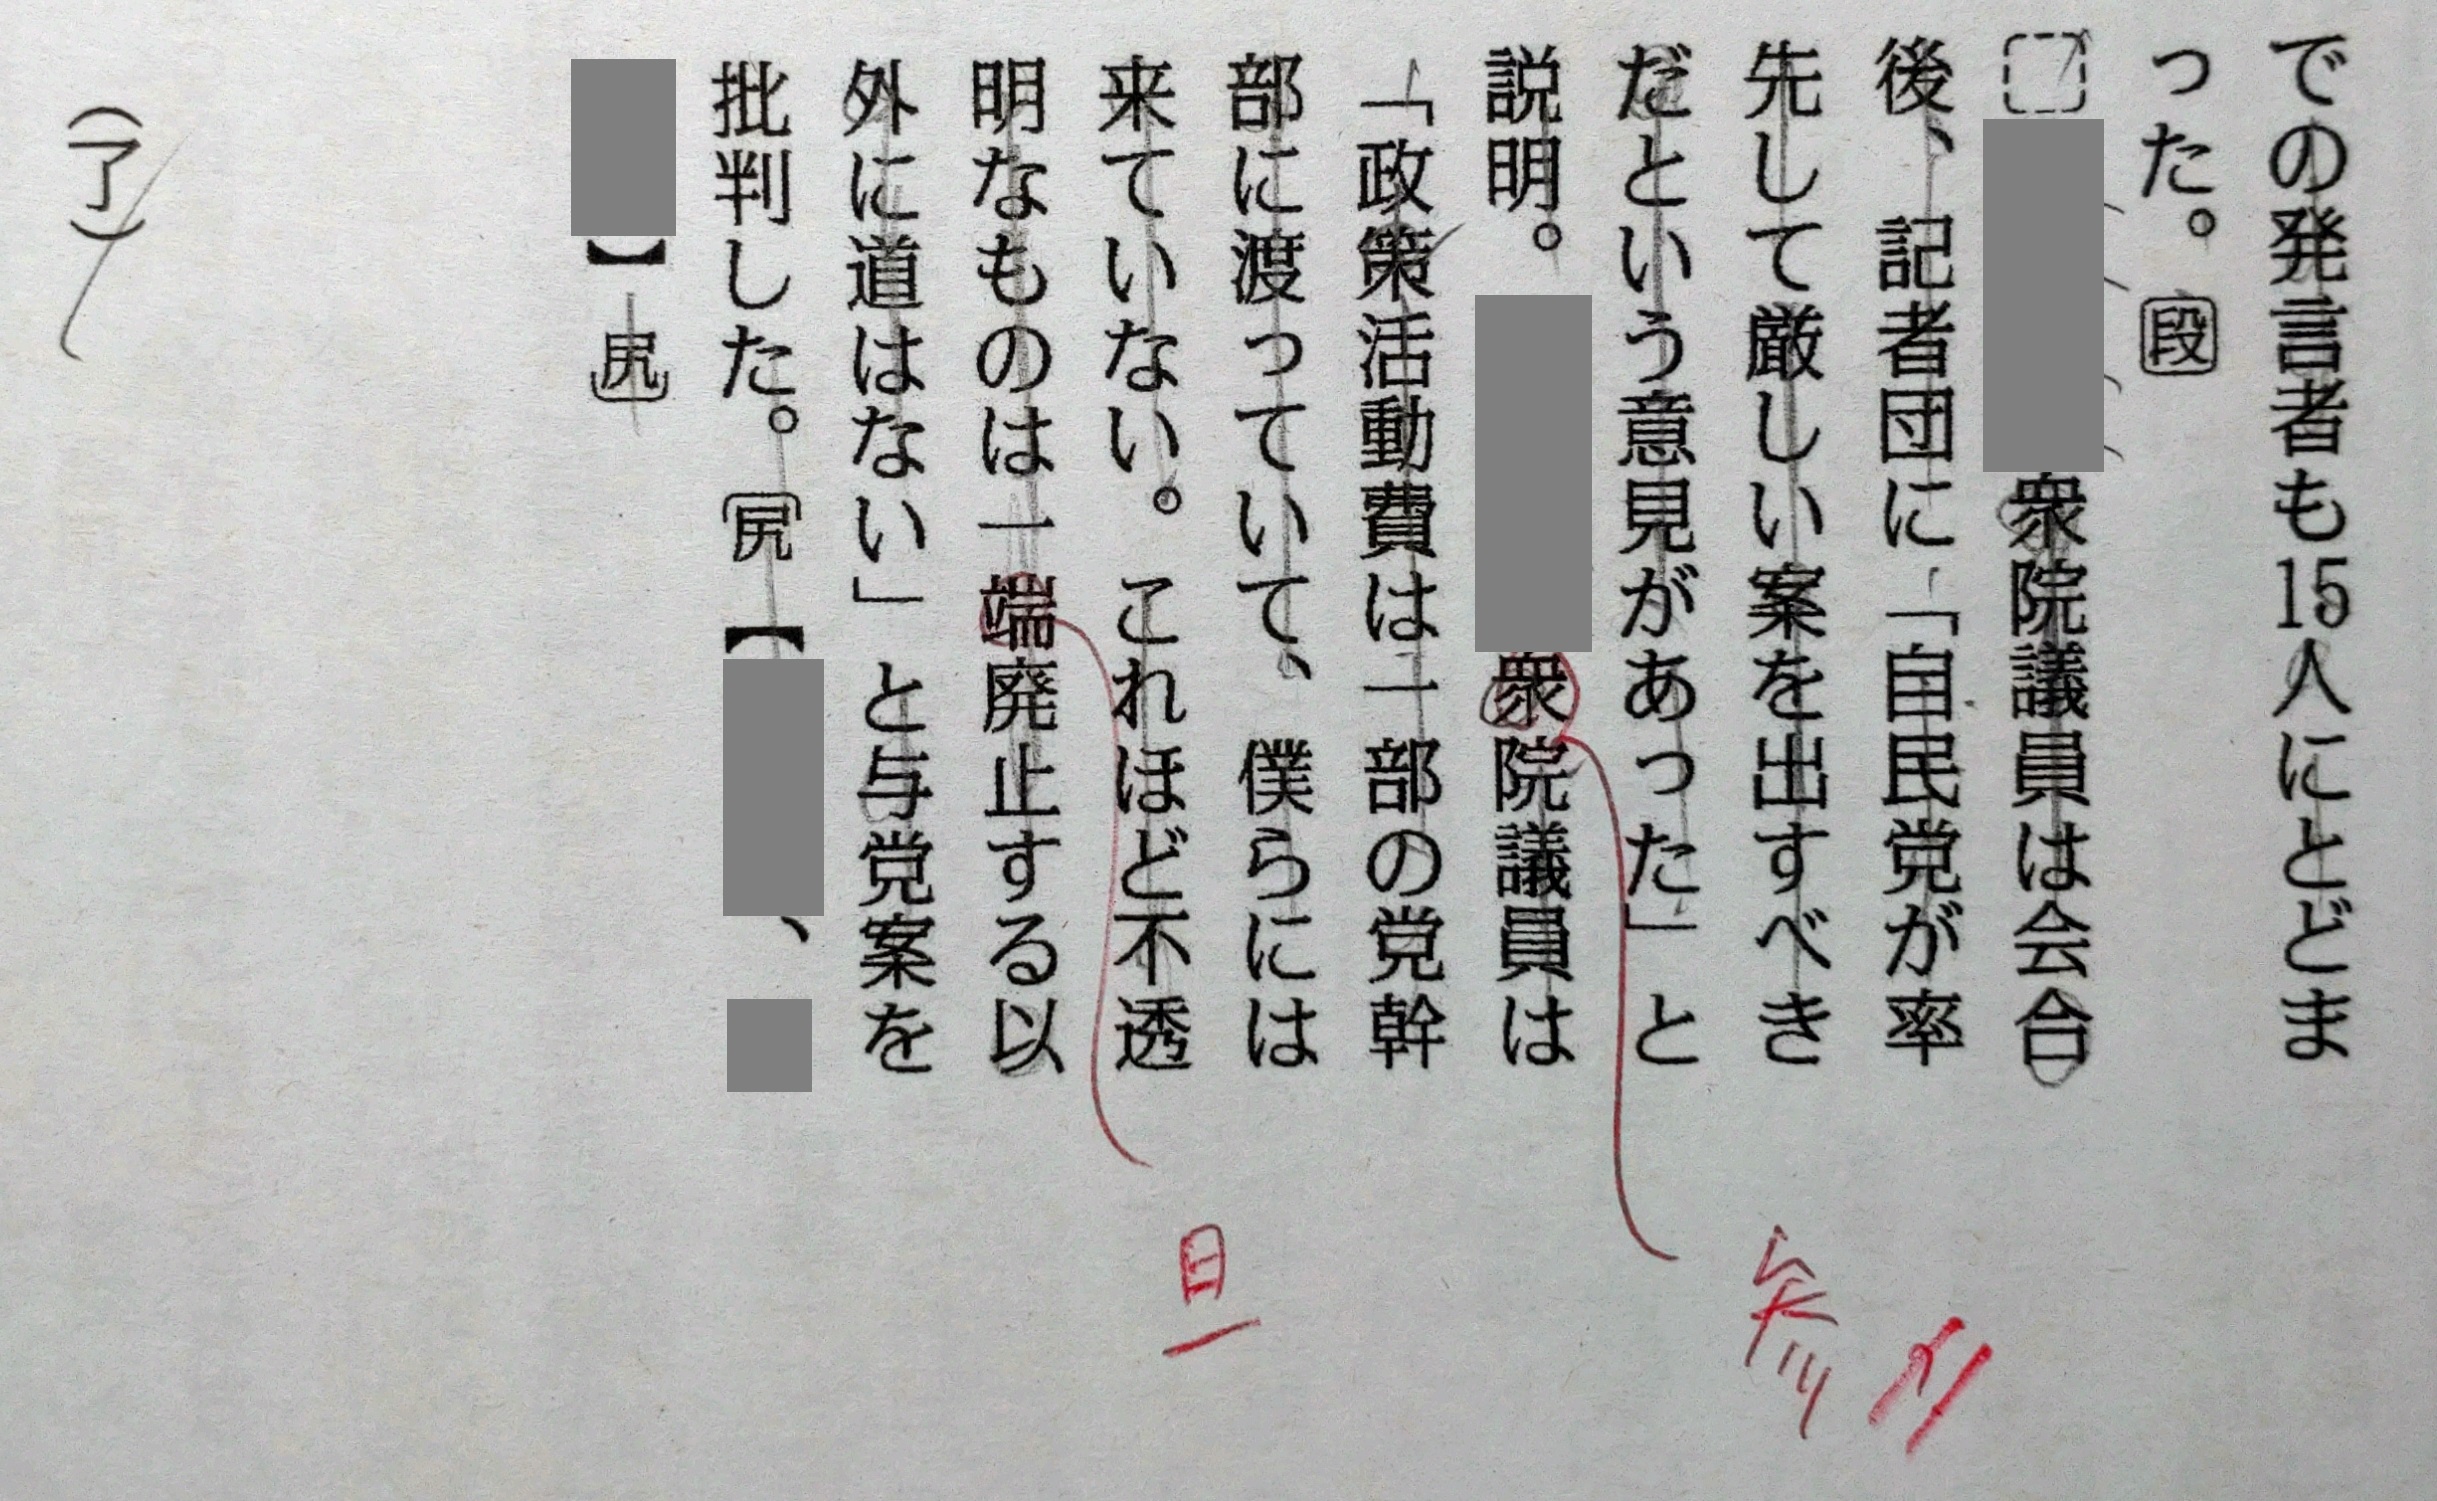 での発言者も15人にとどま
った。段
衆院議員は会合
後、記者団に「自民党が率
先して厳しい案を出すべき
だという意見があった」と
説明。衆院議員は
「政策活動費は一部の党幹
部に渡っていて、僕らには
来ていない。これほど不透
明なものは一端廃止する以
外に道はない」と与党案を
批判した。尻【、
】尻
(了)
参
旦